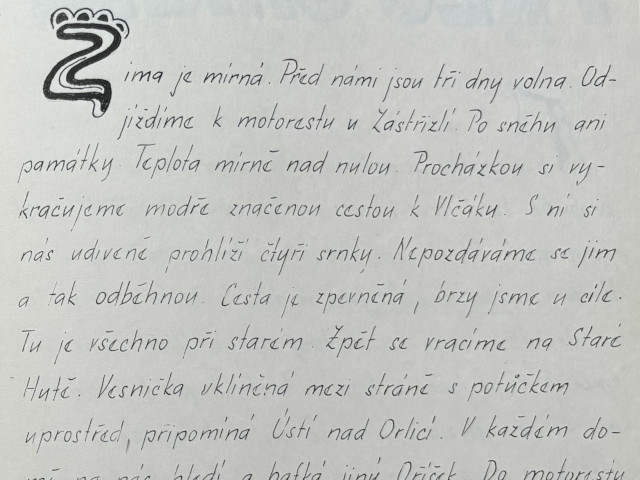 Zima je mírná. Před námi jsou tři dny volna. Od-
jíždíme k motorestu u Zástřizlí. Po sněhu ani
památky. Teplota mírně nad nulou. Procházkou si vy-
kračujeme modře značenou cestou k Vlčáku. S ní si
nás udiveně prohlíží čtyři srnky. Nepozdáváme se jim
a tak odběhnou. Cesta je zpevněná, brzy jsme u cíle.
Tu je všechno při starém. Zpět se vracíme na Staré
Hutě. Vesnička vklíněná mezi stráně s potůčkem
uprostřed, připomíná Ústí nad Orlicí. V každém do-
mě na nás hledí a hafká jiný Oříšek. Do motorestu